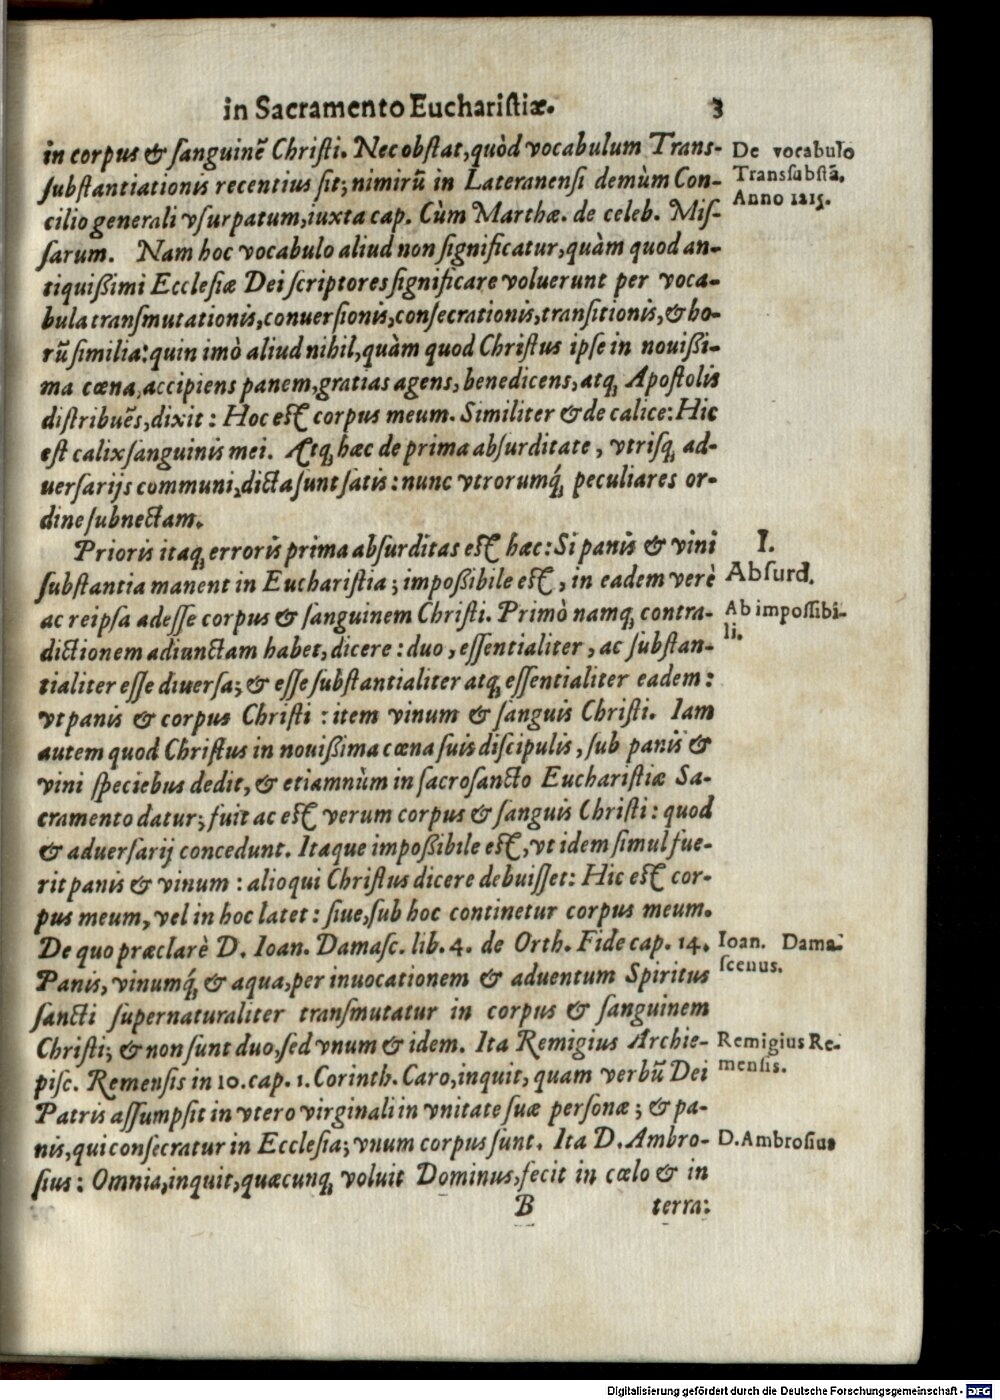 in Sacramento Euchariſtiæ. 3
in corpus & ſanguinē Chriſti. Nec obſtat, quòd vocabulum Trans-
ſubſtantiationis recentius ſit; nimirū in Lateranenſi demùm Con-
cilio generali vſurpatum, iuxta cap. Cùm Marthæ. de celeb. Miſ-
ſarum. Nam hoc vocabulo aliud non ſignificatur, quàm quod an-
tiquißimi Eccleſiæ Dei ſcriptores ſignificare voluerunt per voca-
bula tranſmutationis, conuerſionis, conſecrationis, tranſitionis, & ho-
rū ſimilia: quin imò aliud nihil, quàm quod Chriſtus ipſe in nouißi-
ma cœna, accipiens panem, gratias agens, benedicens, atq; Apoſtolis
diſtribuēs, dixit: Hoc eſt corpus meum. Similiter & de calice: Hic
eſt calix ſanguinis mei. Atq; hæc de prima abſurditate, vtriſq; ad-
uerſarijs communi, dicta ſunt ſatis: nunc vtrorumq́; peculiares or-
dine ſubnectam.
De vocabulo
Transſubſtā.
Anno 1215.
Prioris itaq; erroris prima abſurditas eſt hæc: Si panis & vini
ſubſtantia manent in Euchariſtia; impoßibile eſt, in eadem verè
ac reipſa adeſſe corpus & ſanguinem Chriſti. Primò namq; contra-
dictionem adiunctam habet, dicere: duo, eſſentialiter, ac ſubſtan-
tialiter eſſe diuerſa; & eſſe ſubſtantialiter atq; eſſentialiter eadem:
vt panis & corpus Chriſti: item vinum & ſanguis Chriſti. Iam
autem quod Chriſtus in nouißima cœna ſuis diſcipulis, ſub panis &
vini ſpeciebus dedit, & etiamnùm in ſacroſancto Euchariſtiæ Sa-
cramento datur; fuit ac eſt verum corpus & ſanguis Chriſti: quod
& aduerſarij concedunt. Itaque impoßibile eſt, vt idem ſimul fue-
rit panis & vinum: alioqui Chriſtus dicere debuiſſet: Hic eſt cor-
pus meum, vel in hoc latet: ſiue, ſub hoc continetur corpus meum.
De quo præclarè D. Ioan. Damaſc. lib. 4. de Orth. Fide cap. 14.
Panis, vinumq́; & aqua, per inuocationem & aduentum Spiritus
ſancti ſupernaturaliter tranſmutatur in corpus & ſanguinem
Chriſti; & non ſunt duo, ſed vnum & idem. Ita Remigius Archie-
piſc. Remenſis in 10. cap. 1. Corinth. Caro, inquit, quam verbū Dei
Patris aſſumpſit in vtero virginali in vnitate ſuæ perſonæ; & pa-
nis, qui conſecratur in Eccleſia; vnum corpus ſunt. Ita D. Ambro-
ſius: Omnia, inquit, quæcunq; voluit Dominus, fecit in cœlo & in
I.
Abſurd.
Ab impoſſibi-
li.
Ioan. Dama-
ſcenus.
Remigius Re-
menſis.
D. Ambroſius
B terra:
Digitalisierung gefördert durch die Deutsche Forschungsgemeinschaft - DFG